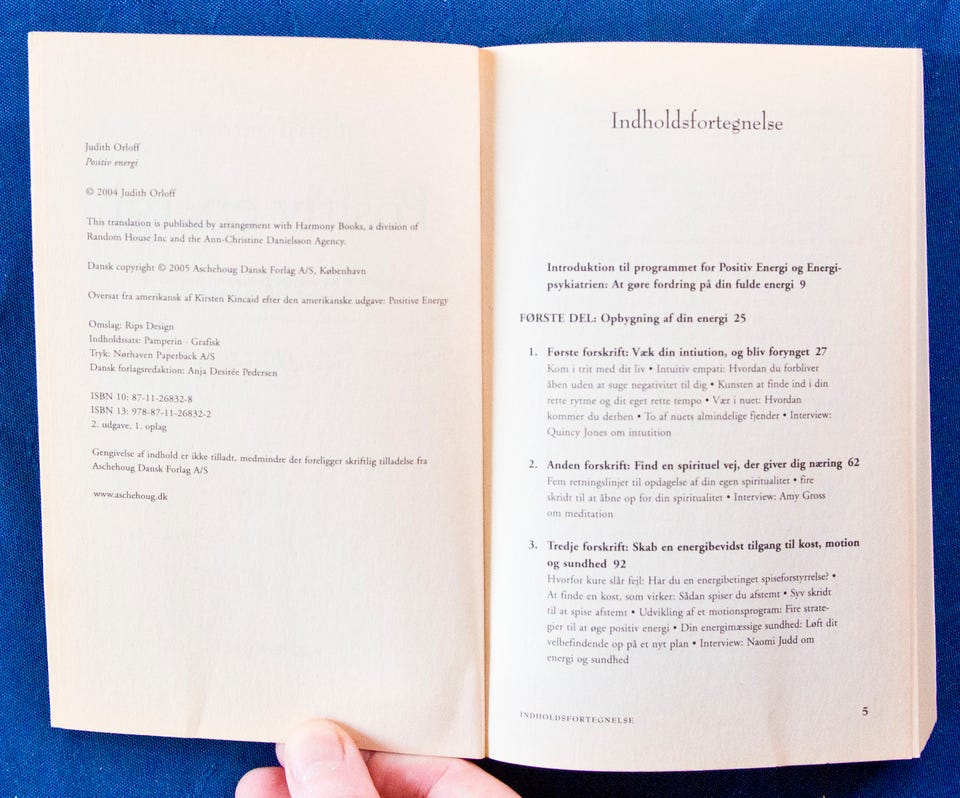 Judith Orloff
Positiv energi
© 2004 Judith Orloff
This translation is published by arrangement with Harmony Books, a division of
Random House Inc and the Ann-Christine Danielsson Agency.
Dansk copyright © 2005 Aschehoug Dansk Forlag A/S, København
Oversat fra amerikansk af Kirsten Kincaid efter den amerikanske udgave: Positive Energy
Omslag: Rips Design
Indholdssats: Pamperin - Grafisk
Tryk: Nørhaven Paperback A/S
Dansk forlagsredaktion: Anja Desirée Pedersen
ISBN 10: 87-11-26832-8
ISBN 13: 978-87-11-26832-2
2. udgave, 1. oplag
Gengivelse af indhold er ikke tilladt, medmindre der foreligger skriftlig tilladelse fra
Aschehoug Dansk Forlag A/S
www.aschehoug.dk
Indholdsfortegnelse
Introduktion til programmet for Positiv Energi og Energi-
psykiatrien: At gøre fordring på din fulde energi 9
FØRSTE DEL: Opbygning af din energi 25
1. Første forskrift: Væk din intiution, og bliv forynget 27
Kom i trit med dit liv • Intuitiv empati: Hvordan du forbliver
åben uden at suge negativitet til dig • Kunsten at finde ind i din
rette rytme og dit eget rette tempo • Vær i nuet: Hvordan
kommer du derhen • To af nuets almindelige fjender • Interview:
Quincy Jones om intutition
2. Anden forskrift: Find en spirituel vej, der giver dig næring 62
Fem retningslinjer til opdagelse af din egen spiritualitet • fire
skridt til at åbne op for din spiritualitet • Interview: Amy Gross
om meditation
3. Tredje forskrift: Skab en energibevidst tilgang til kost, motion
og sundhed 92
Hvorfor kure slår fejl: Har du en energibetinget spiseforstyrrelse? •
At finde en kost, som virker: Sådan spiser du afstemt • Syv skridt
til at spise afstemt • Udvikling af et motionsprogram: Fire strate-
gier til at øge positiv energi • Din energimæssige sundhed: Løft dit
velbefindende op på et nyt plan • Interview: Naomi Judd om
energi og sundhed
INDHOLDSFORTEGNELSE 5